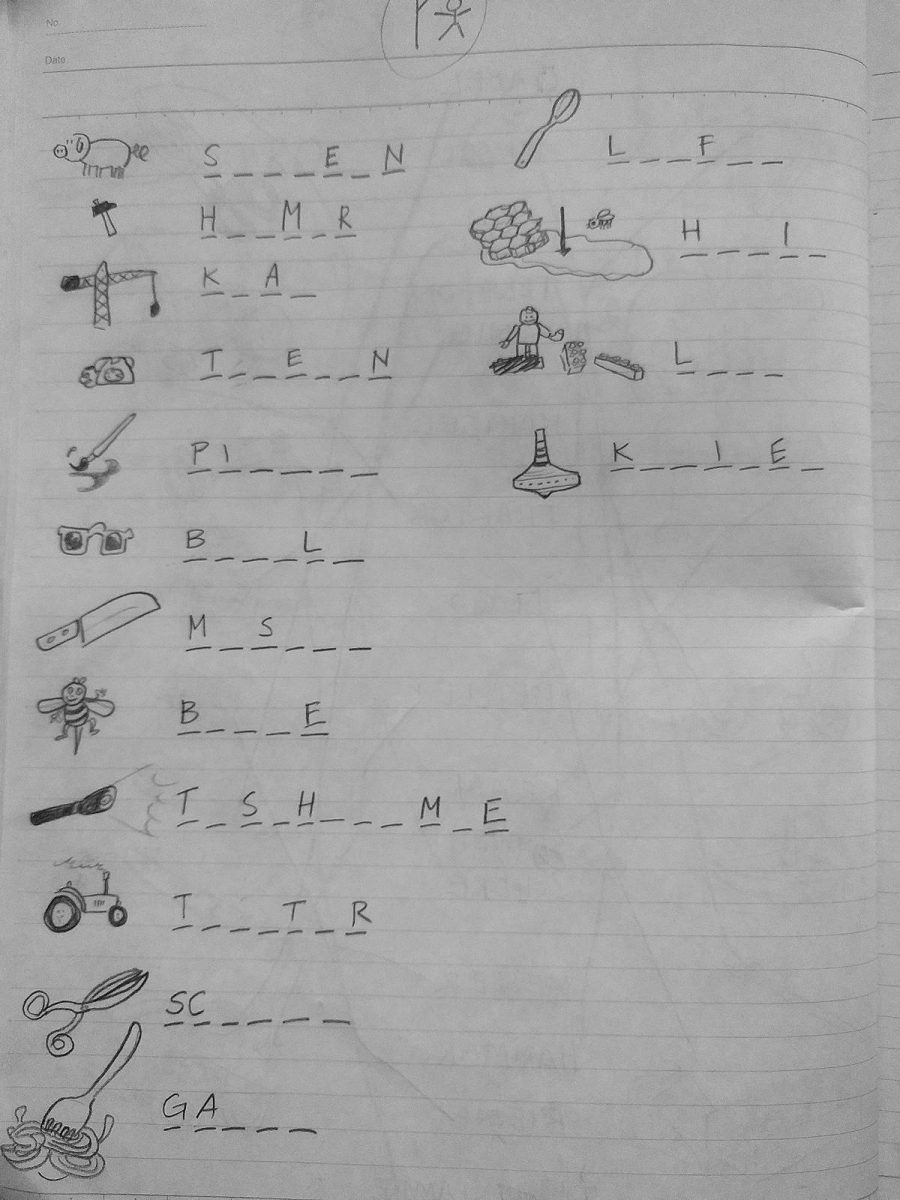 No
Date
S _ _ _ E _ N
H _ _ M _ R
K _ A _
T _ _ E _ _ N
P I _ _ _ _ _
B _ _ _ L _
M _ S _ _ _
B _ _ _ E
T _ S _ H _ _ _ M _ E
T _ _ _ T _ R
S C _ _ _ _
G A _ _ _
L _ _ F _ _
H _ _ I _
L _ _ _
K _ _ I _ E _